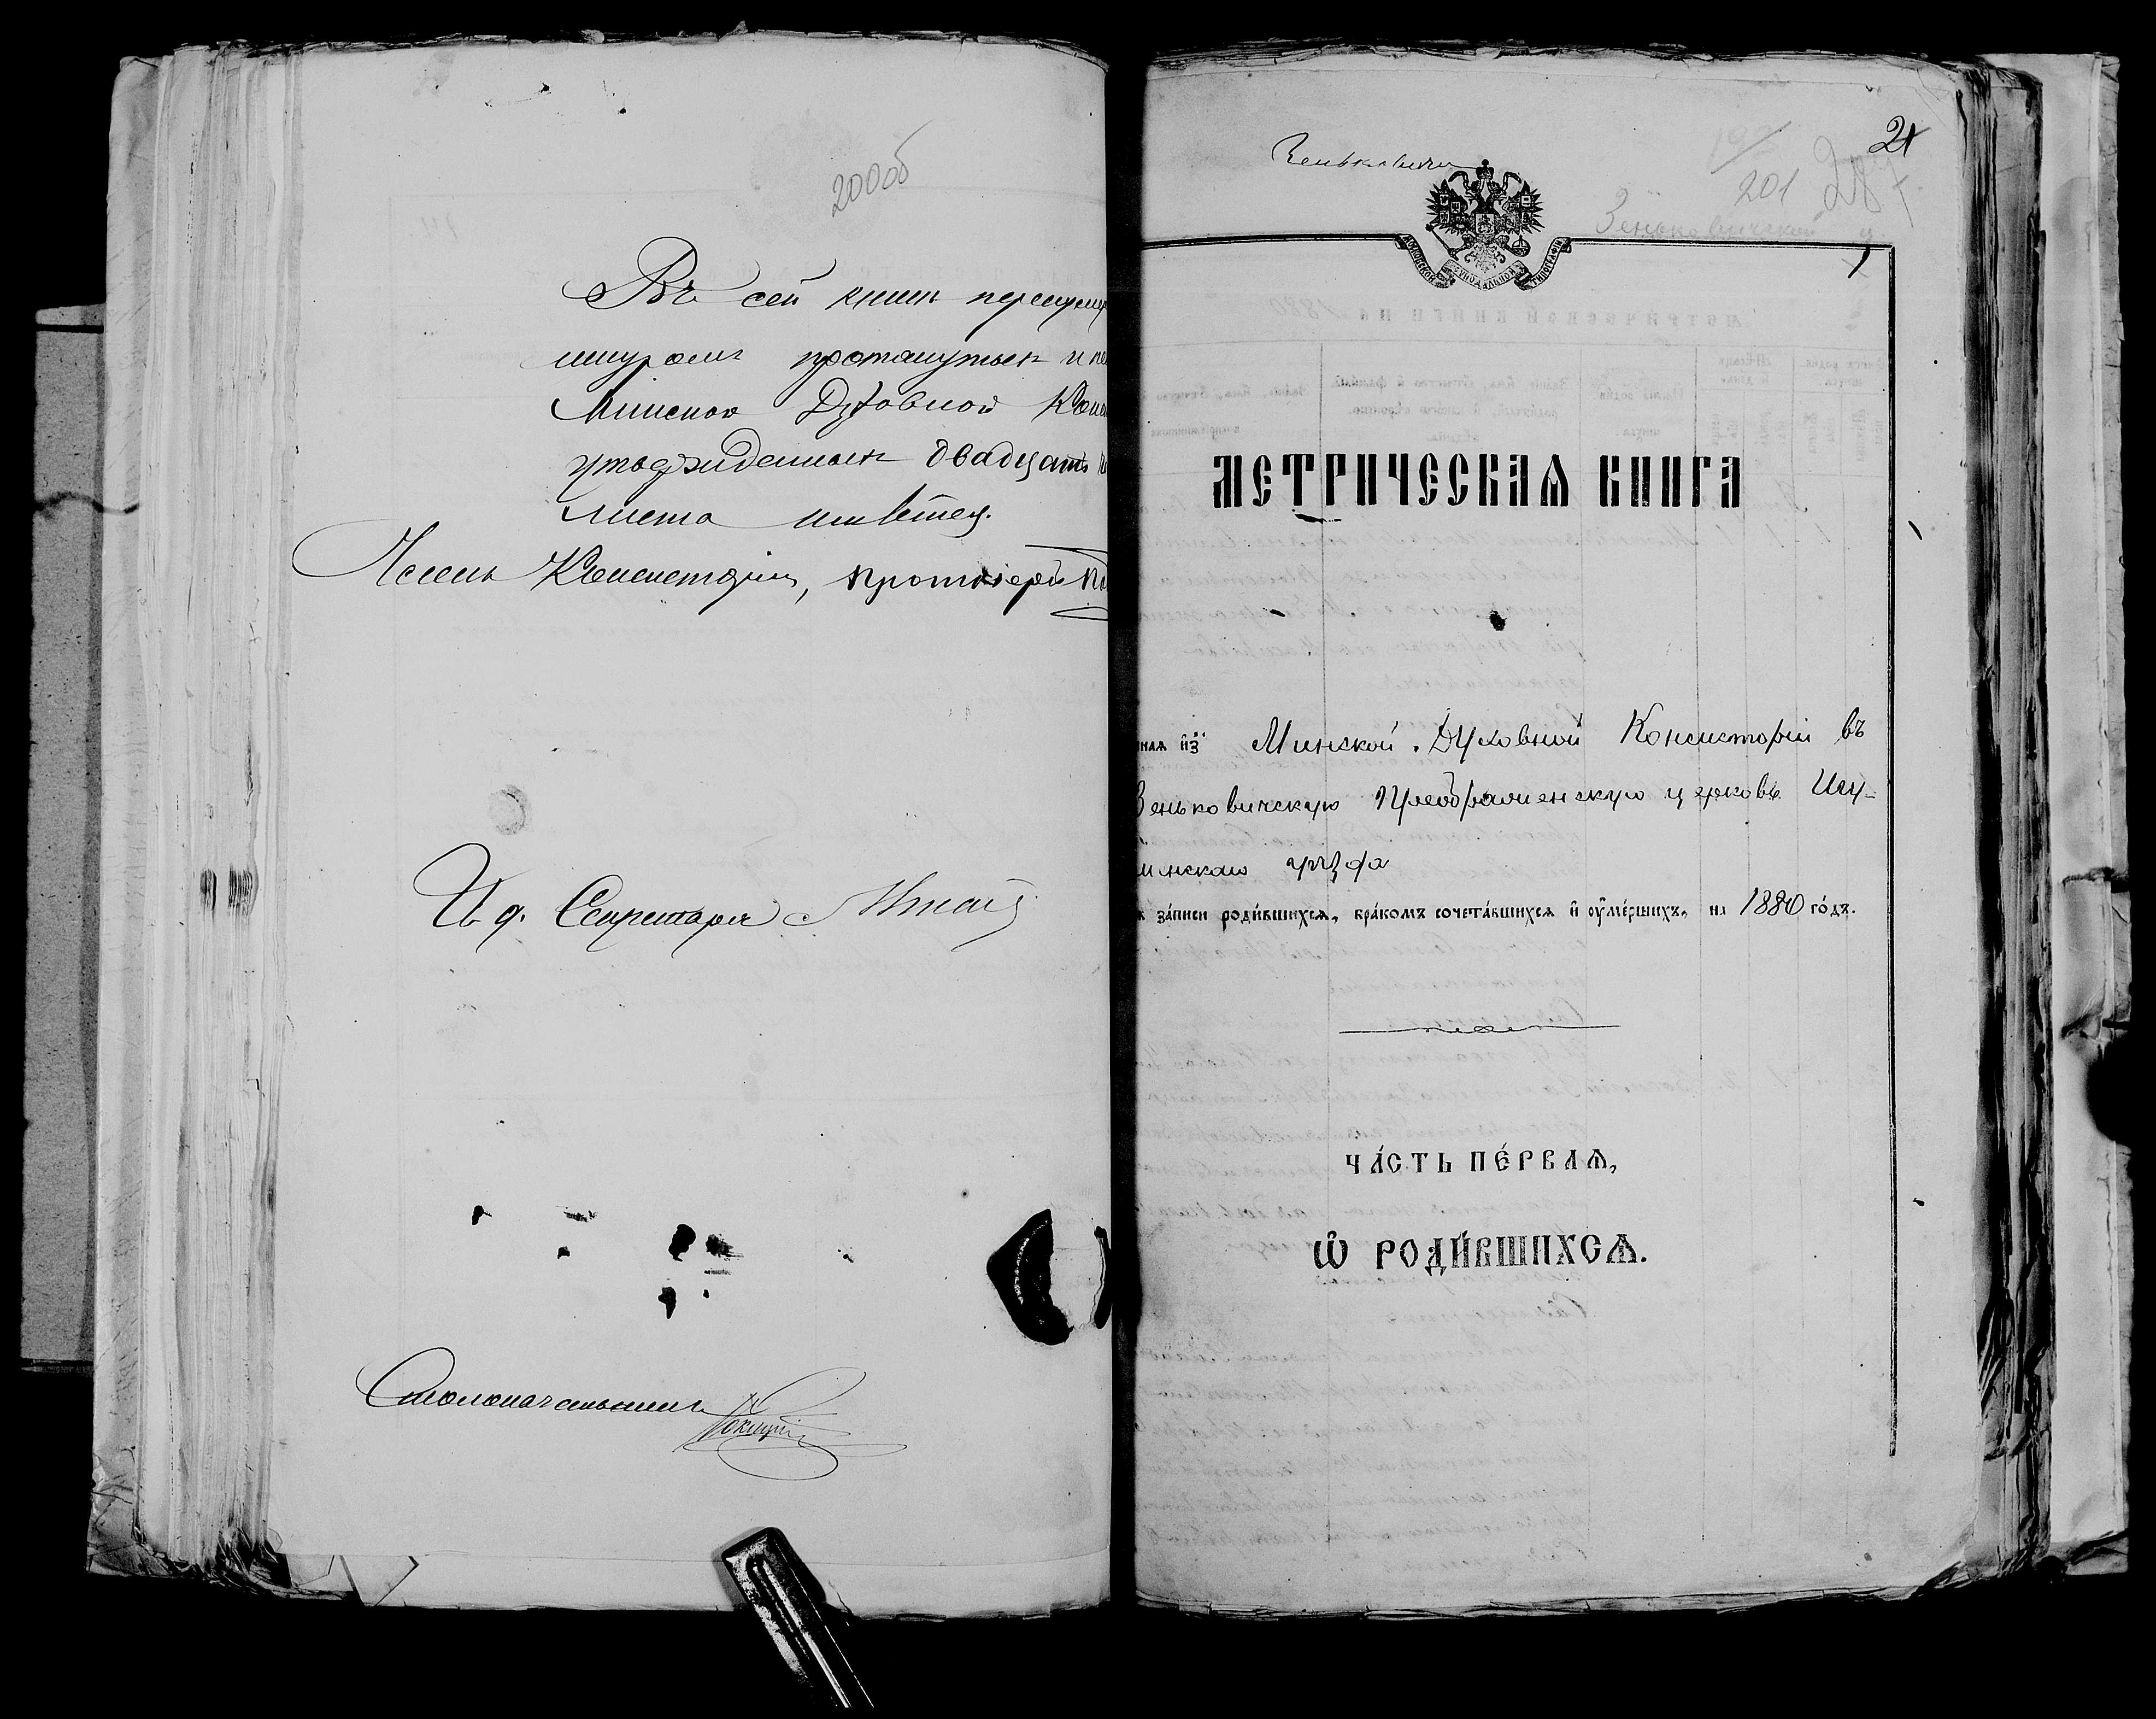 200об
Въ сей книгѣ перенумер
шнуромъ протянутыхъ и пе
Минской Духовной Конс
утвержденныхъ двадцать
листа имѣетея.
Членъ Консисторіи, протоіерей
И. д. Секретаря
Столоначальникъ
21
Зеньковичи
201
Зеньковичской ц.
МОСКОВСКОЙ СѴНОДАЛЬНОЙ ТИПОГРАФІИ
МЕТРИЧЕСКАѦ КНИГА
ная и҆з̾ Минской Духовной Консисторіи въ
Зеньковичскую Преображенскую церковь Игу-
менскаго уѣзда
за́писи роди́вшихсѧ, бра́комъ сочета́вшихсѧ и҆ ᲂу҆ме́ршихъ, на 1880 го́дъ.
ЧА́СТЬ ПЕ́РВАѦ,
Ѡ҆ РОДИ́ВШИХСѦ.